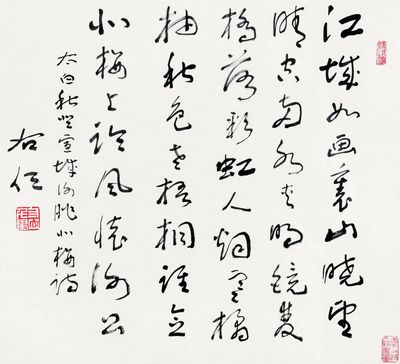 江城如画裏山曉望
晴空兩水夾明鏡雙
橋落彩虹人烟寒橘
柚秋色老梧桐誰念
北樓上臨風懷謝公
太白秋登宣城謝朓北樓詩
右任